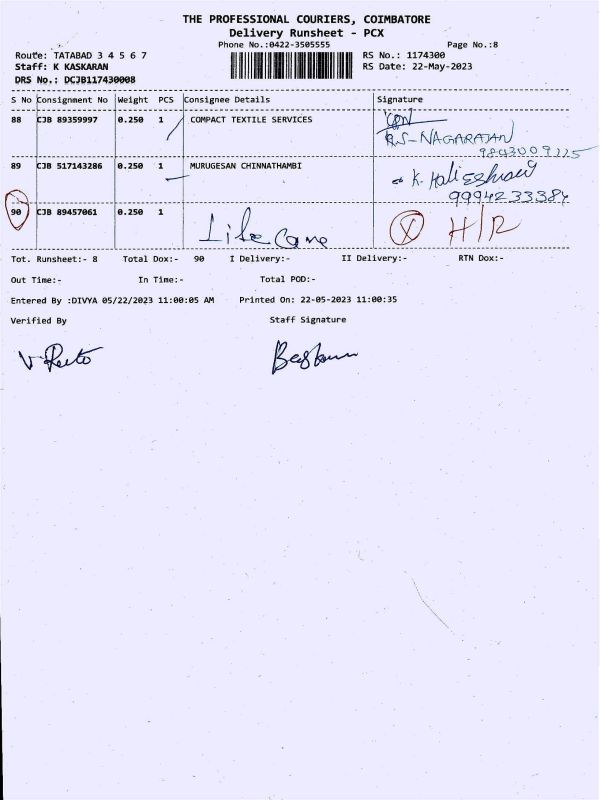 THE PROFESSIONAL COURIERS, COIMBATORE
Delivery Runsheet - PCX
Phone No.:0422-3505555 Page No.:8
Route: TATABAD 3 4 5 6 7 RS No.: 1174300
Staff: K KASKARAN RS Date: 22-May-2023
DRS No.: DCJB117430008
S No Consignment No Weight PCS Consignee Details Signature
88 CJB 89359997 0.250 1 COMPACT TEXTILE SERVICES
R.S-NAGARAJAN
9843009125
89 CJB 517143286 0.250 1 MURUGESAN CHINNATHAMBI
K.
9994233384
90 CJB 89457061 0.250 1 Life Care X H/R
Tot. Runsheet:- 8 Total Dox:- 90 I Delivery:- II Delivery:- RTN Dox:-
Out Time:- In Time:- Total POD:-
Entered By :DIVYA 05/22/2023 11:00:05 AM Printed On: 22-05-2023 11:00:35
Verified By Staff Signature